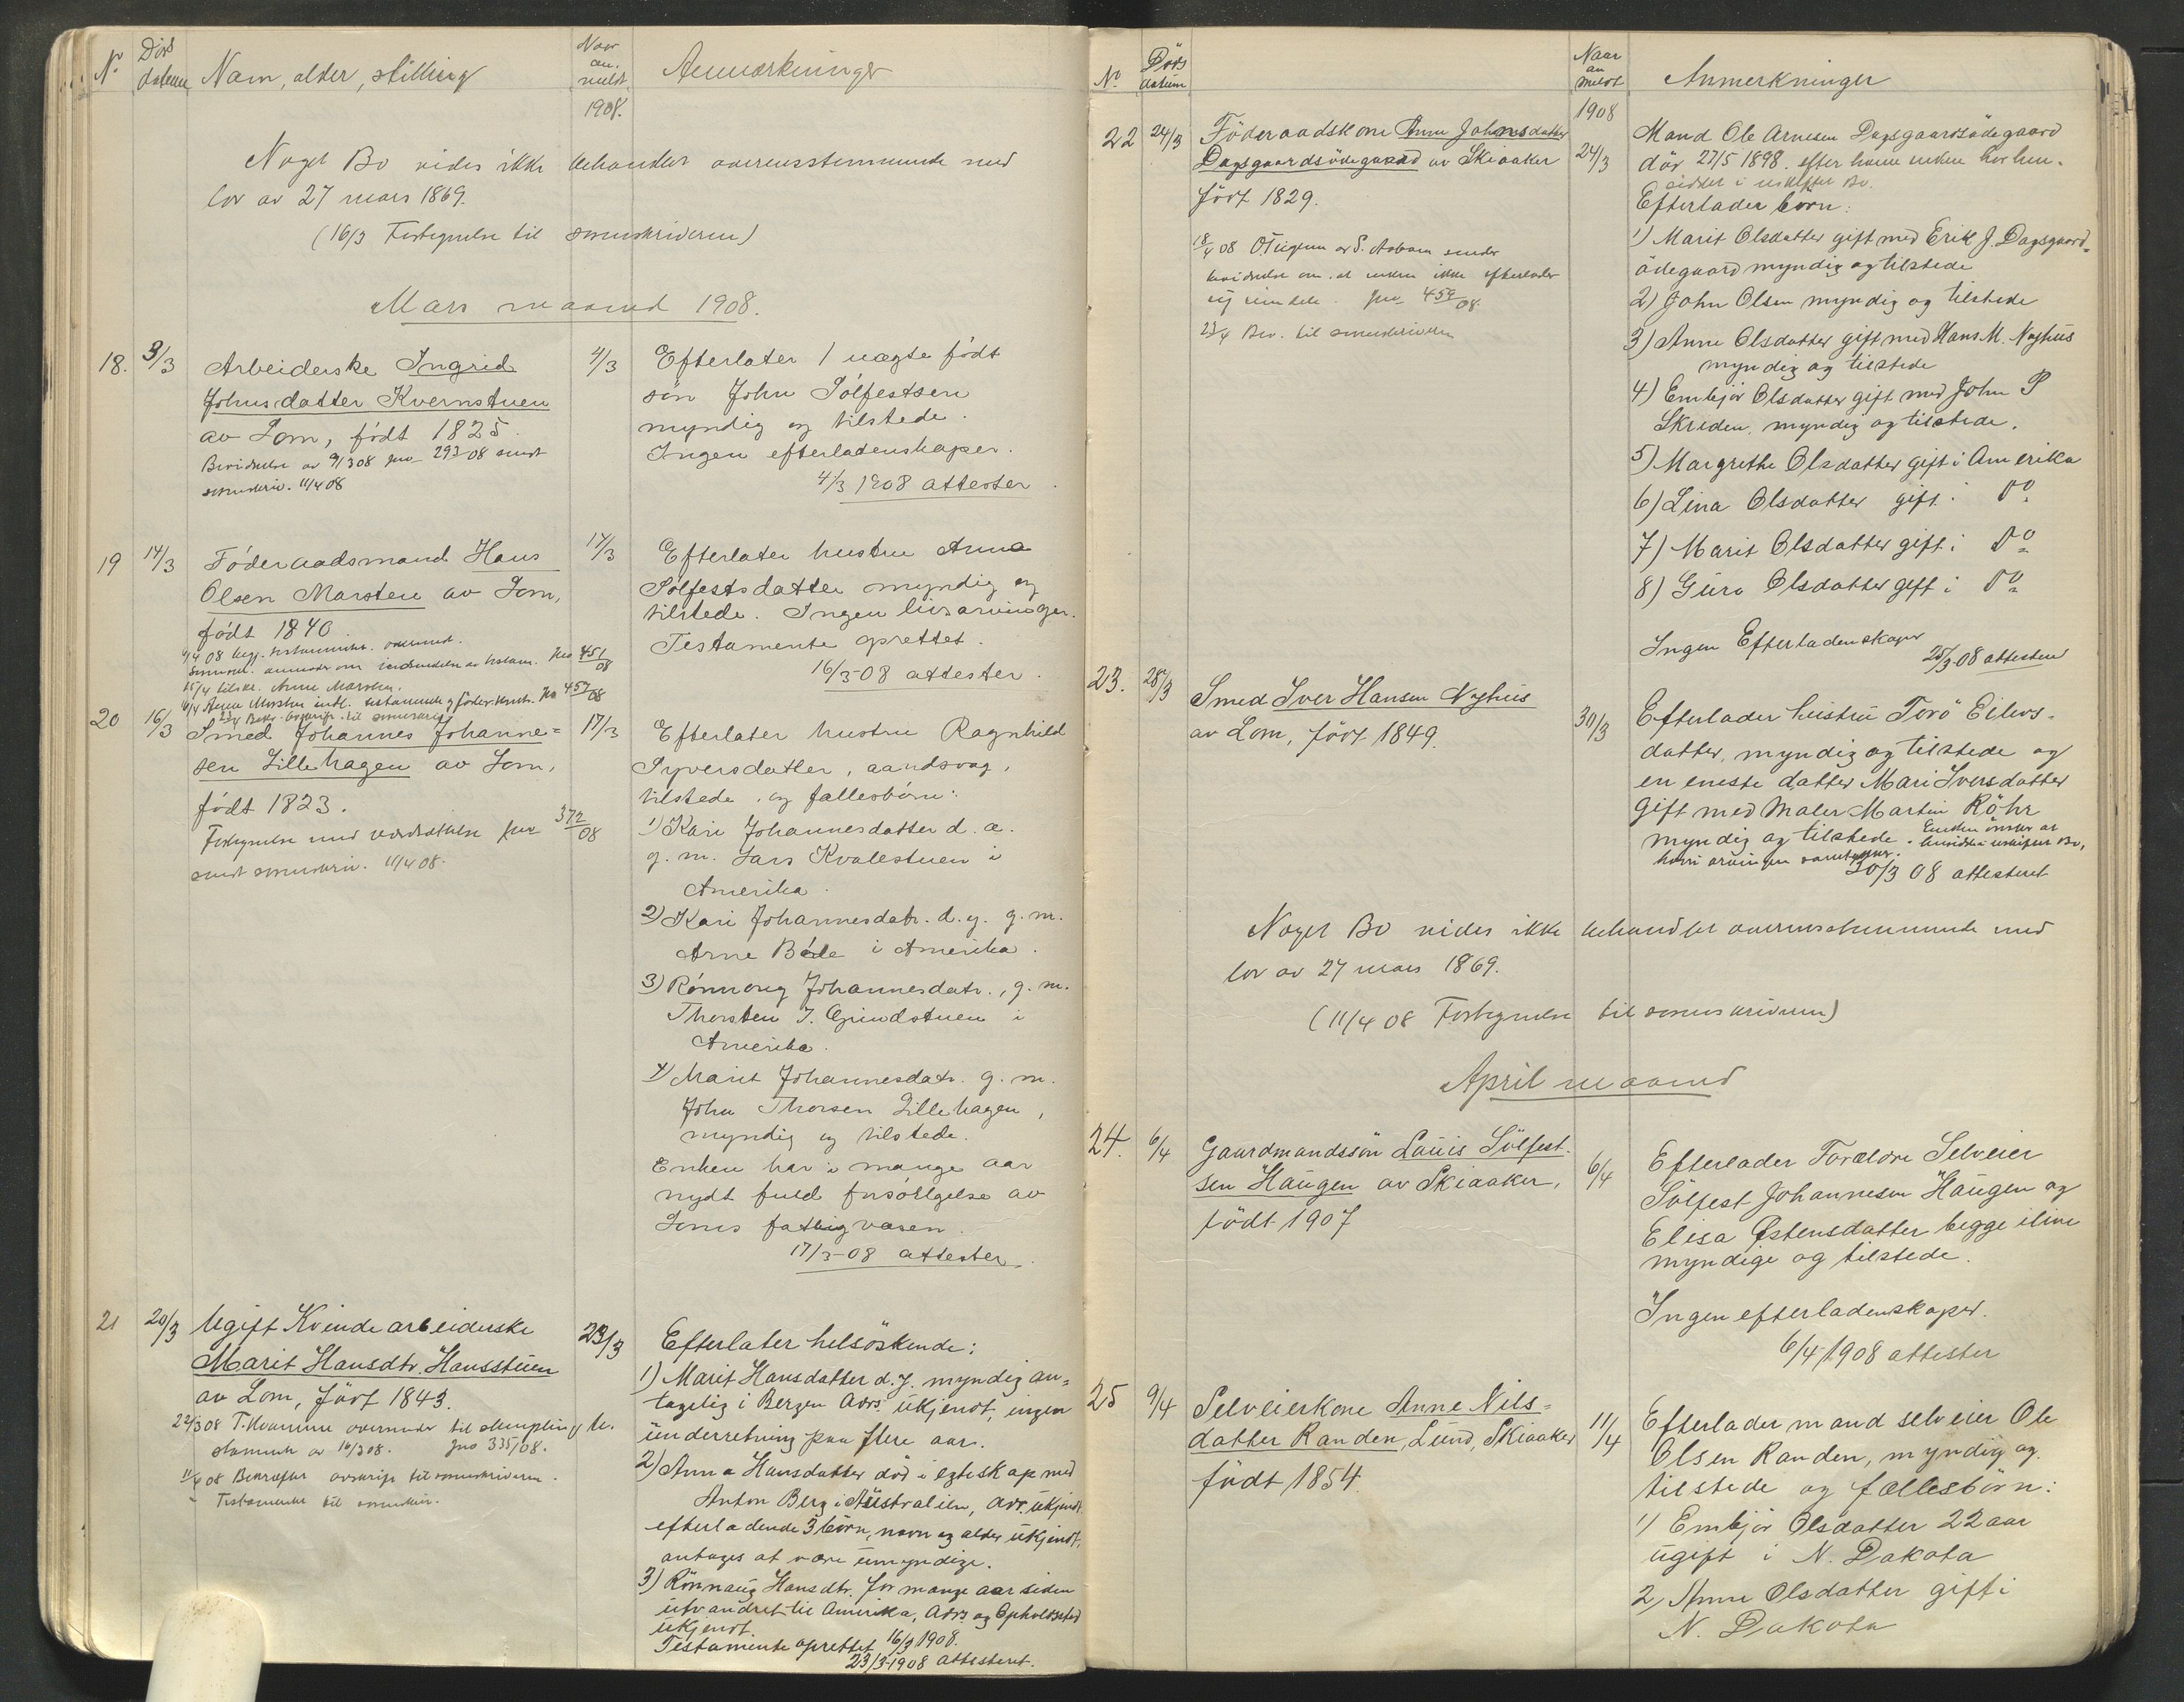 No
Døds
datum
Navn, alder, stilling
Naar
an-
meldt
Anmerkninger
1908.
Noget Bo vides ikke behandlet overensstemmende med
lov av 27 mars 1869.
(16/3 Fortegnelse til sorenskriveren)
Mars maaned 1908.
18.
3/3
Arbeiderske Ingrid
Johnsdatter Kvernstuen
av Lom, født 1825.
Bevidnelse av 9/3 08 jno 293/08 sendt
sorenskriv. 11/4 08
4/3
Efterlater 1 uægte født
søn John Sølfestsen
myndig og tilstede.
Ingen efterladenskaper.
4/3 1908 attester.
19
14/3
Føderaadsmand Hans
Olsen Marsten av Lom,
født 1840
451/08
15/4 tilskr. Anne Marsten.
457/08
17/3
Efterlater hustru Anna
Sølfestsdatter myndig og
tilstede. Ingen livsarvinger.
Testamente oprettet.
16/3-08 attester.
20
16/3
Smed Johannes Johanne=
sen Lillehagen av Lom,
født 1823.
Fortegnelse med værdsættelse jno 372/08
sendt sorenskriv. 11/4 08.
17/3
Efterlater hustru Ragnhild
Syversdatter, aandssvag,
tilstede, og fællesbørn:
1) Kari Johannesdatter d. æ.
g. m. Lars Kvalestuen i
Amerika.
2) Kari Johannesdatr. d. y. g. m.
Arne Bøle i Amerika.
3) Rønnoug Johannesdatr., g. m.
Thorsten J. Grindstuen i
Amerika.
4) Marit Johannesdatr. g. m.
John Thorsen Lillehagen,
myndig og tilstede.
Enken har i mange aar
nydt fuld forsørgelse av
Loms fattigvæsen.
17/3-08 attester.
21
20/3
Ugift Kvinde arbeiderske
Marit Hansdtr. Hansstuen
av Lom, født 1843.
av 16/3 08. jno 335/08.
11/4 08 Bekræftet avskrift til sorenskriveren.
Testamente til sorenskriv.
23/3
Efterlater helsøskende:
1) Marit Hansdatter d. y. myndig an=
tagelig i Bergen Adrs. ukjendt, ingen
underretning paa flere aar.
2) Anna Hansdatter død i egteskap med
Anton Berg i Australien, adr. ukjendt.
efterladende 3 børn, navn og alder ukjendt,
antages at være umyndige.
3) Rønnaug Hansdtr. for mange aar siden
utvandret til Amerika, Adrs og Opholdssted
ukjendt.
Testamente oprettet 16/3 1908.
23/3-1908 attesteret.
No
Døds
datum
Naar
an
meldt
Anmerkninger
1908
22
24/3
Føderaadskone Anne Johnsdatter
Dagsgaardsødegaard av Skiaaker
født 1829.
ej eiendele. jno 459/08.
23/4 Bev. til sorenskriveren
24/3
Mand Ole Arnesen Dagsgaardsødegaard
død 27/5 1898. efter hvem enken har hen-
siddet i uskiftet Bo.
Efterlader børn:
1) Marit Olsdatter gift med Erik J. Dagsgaard=
ødegaard myndig og tilstede
2) John Olsen myndig og tilstede
3) Anne Olsdatter gift med Hans M. Nyhus
myndig og tilstede
4) Embjør Olsdatter gift med John P
Skreden, myndig og tilstede.
5) Margrethe Olsdatter gift i Amerika
6) Lina Olsdatter gift i Do
7) Marit Olsdatter gift i Do
8) Guro Olsdatter gift i Do
Ingen Efterladenskaper
25/3-08 attesteret
23.
28/3
Smed Iver Hansen Nyhus
av Lom, født 1849.
30/3
Efterlader hustru Torø Eilevs-
datter, myndig og tilstede og
en eneste datter Mari Iversdatter
gift med Maler Martin Röhr
myndig og tilstede. Enken ønsker at
hensidde i uskiftet Bo,
hvori arvingen samtykker.
30/3 08 attesteret
Noget Bo vides ikke behandlet overensstemmende med
lov av 27 mars 1869.
(11/4 08 Fortegnelse til sorenskriveren)
April maaned
24.
6/4
Gaardmandssøn Louis Sølfest-
sen Haugen av Skiaaker,
født 1907
6/4
Efterlader Forældre Selveier
Sølfest Johannesen Haugen og
Elisa Østensdatter begge ilive
myndige og tilstede.
Ingen efterladenskaper.
6/4 1908 attester
25
9/4
Selveierkone Anne Nils=
datter Randen, Lund, Skiaaker
født 1854.
11/4
Efterlader mand selveier Ole
Olsen Randen, myndig og
tilstede og fællesbørn:
1) Embjør Olsdatter 22 aar
ugift i N. Dakota
2) Anne Olsdatter gift i
N. Dakota